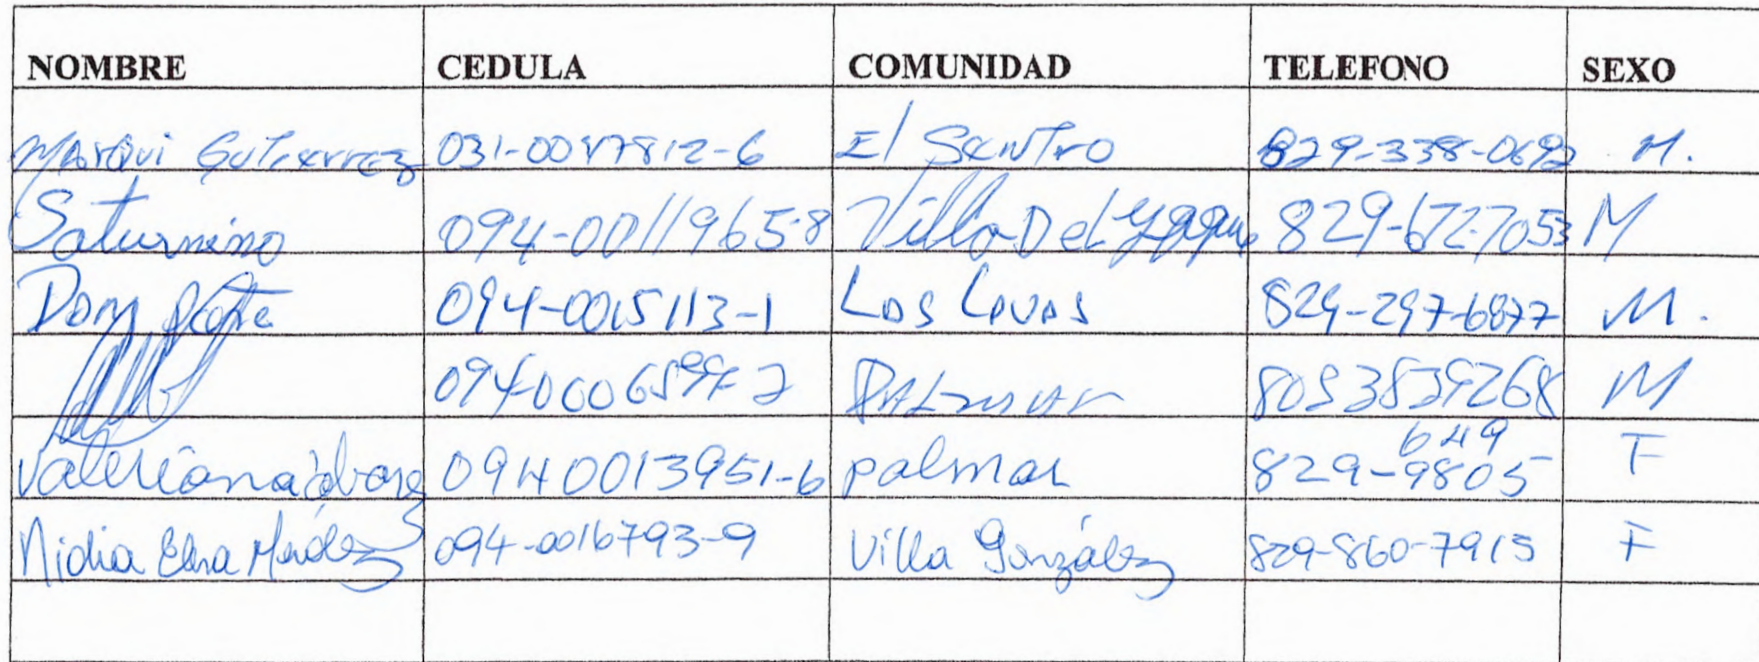 NOMBRE CEDULA COMUNIDAD TELEFONO SEXO
Marqui Gutierrez 031-0087812-6 El Sentro 829-338-0692 M.
Saturnino 094-0011965-8 Villa Del Yaque 829-672-7053 M
094-0015113-1 Los 829-297-6877 M.
Palmar 8093539268 M
Valeriana 0940013951-6 palmar 829-649-9805 F
Nidia Elna Mendez 094-0016793-9 Villa González 829-860-7915 F